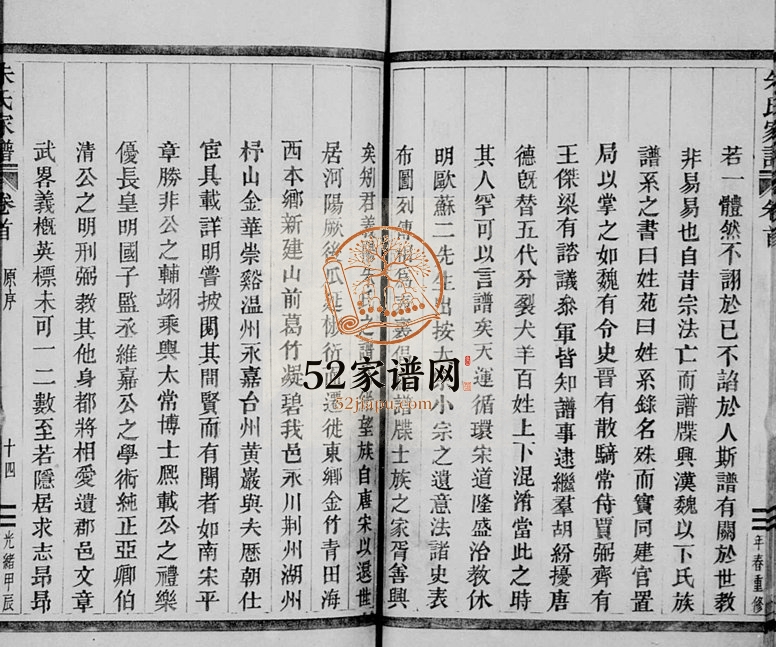 若一體然不詡於已不諂於人斯譜有關於世教
非易易也自昔宗法亡而譜牒興漢魏以下氏族
譜系之書曰姓苑曰姓系錄名殊而實同建官置
局以掌之如魏有令史晉有散騎常侍賈弼齊有
王傑梁有諮議叅軍皆知譜事逮繼羣胡紛擾唐
德旣替五代分裂犬羊百姓上下混淆當此之時
其人罕可以言譜矣天運循環宋道隆盛治教休
明歐蘇二先生出按大小宗之遺意法諸史表
布圖列傳 譜牒士族之家胥善興
矣矧君義陽朱氏之譜 望族自唐宋以還世
居河陽厥後瓜 遷徙東鄉金竹青田海
西本鄉新建山前葛竹凝碧我邑永川荆州湖州
杼山金華崇谿温州永嘉台州黄巖與夫歴朝仕
宦具載詳明嘗披閱其間賢而有聞者如南宋平
章勝非公之輔翊乘輿太常博士熙載公之禮樂
優長皇明國子監丞維嘉公之學術純正亞卿伯
清公之明刑弼教其他身都將相愛遺郡邑文章
武畧義概英標未可一二數至若隱居求志昂昂
年春重修
朱氏家譜
卷首
原序
十四
光緒甲辰
52家谱网
52jiapu.com